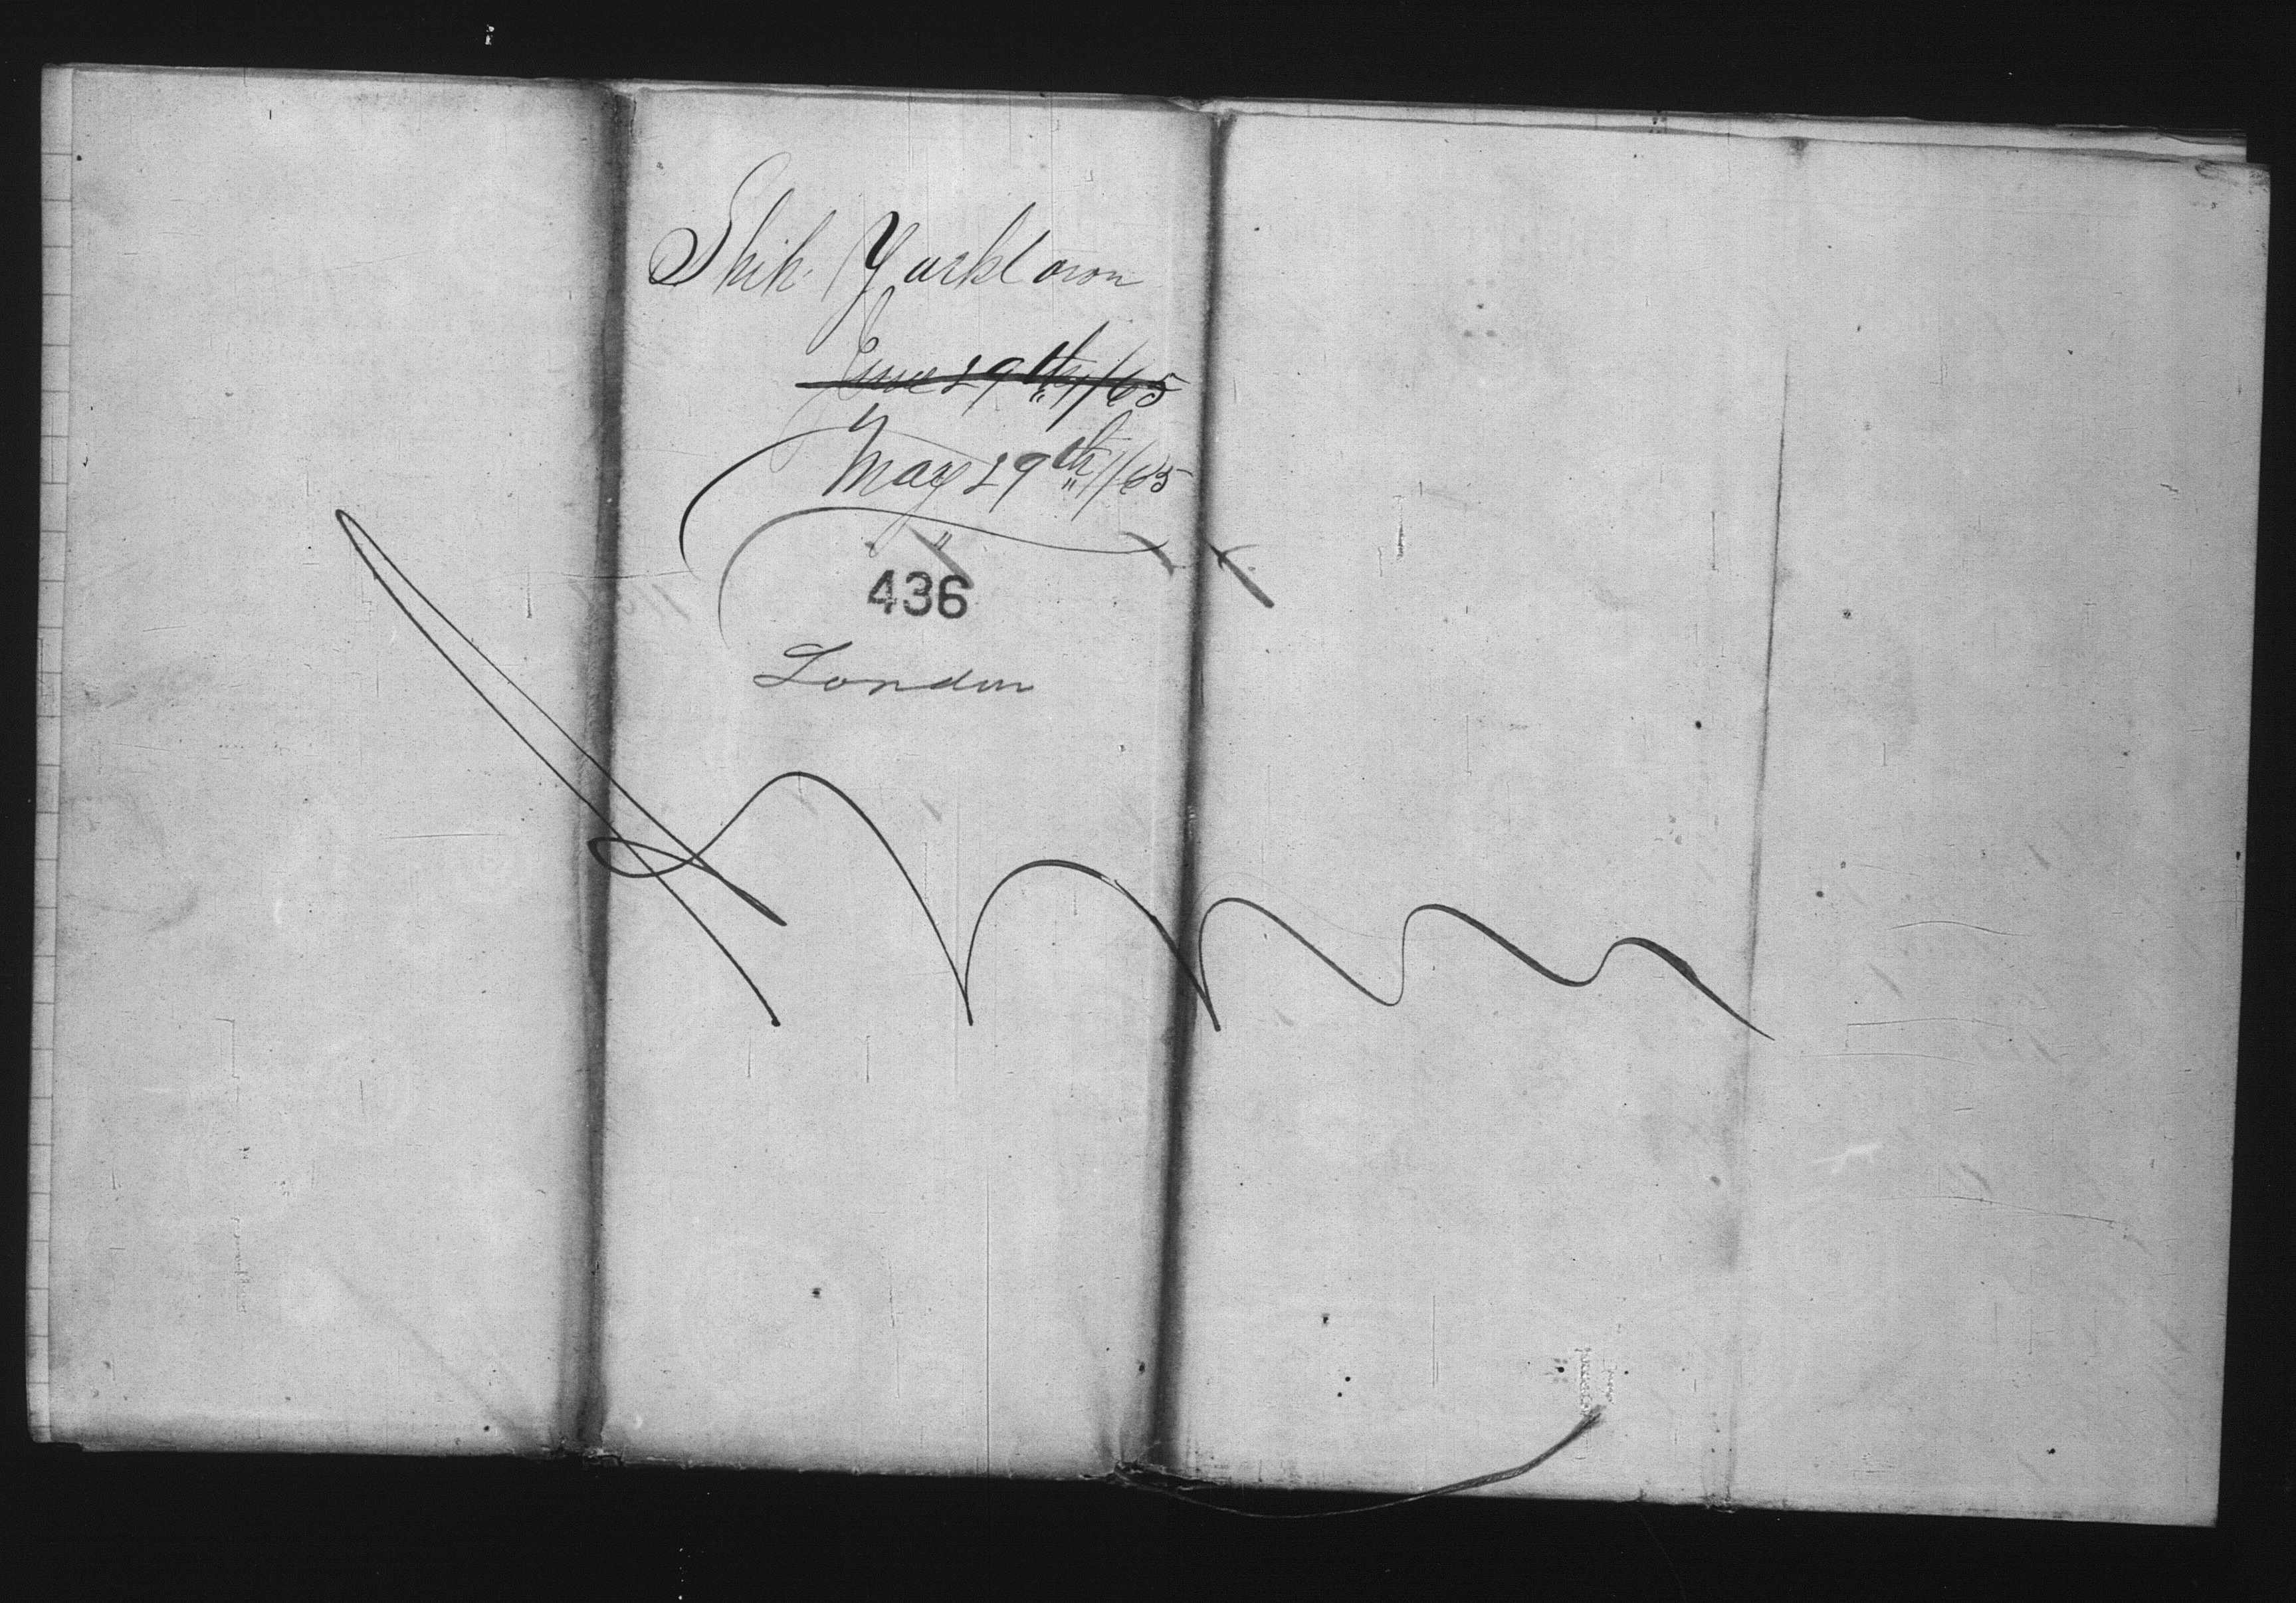 Ship Yorktown
June 29th//65
May 29th//65
436
London